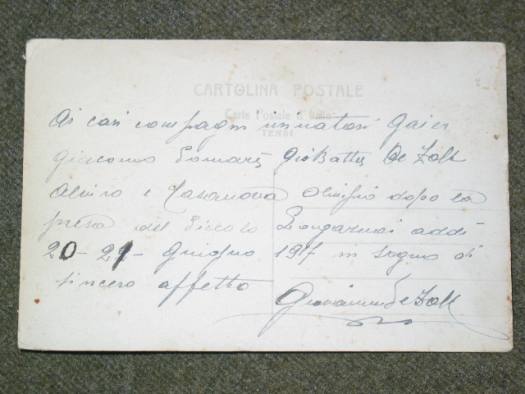 CARTOLINA POSTALE
Carte Postale d'Italie
Ai cari compagni minatori Gaier
Giacomo Somariz GioBatta De Zolt
Olivo e Casanova Onifrio dopo la
presa del Piccolo Lagazuoi addi
20-21- Giugno 1917 in segno di
sincero affetto
Giovanni De Zolt